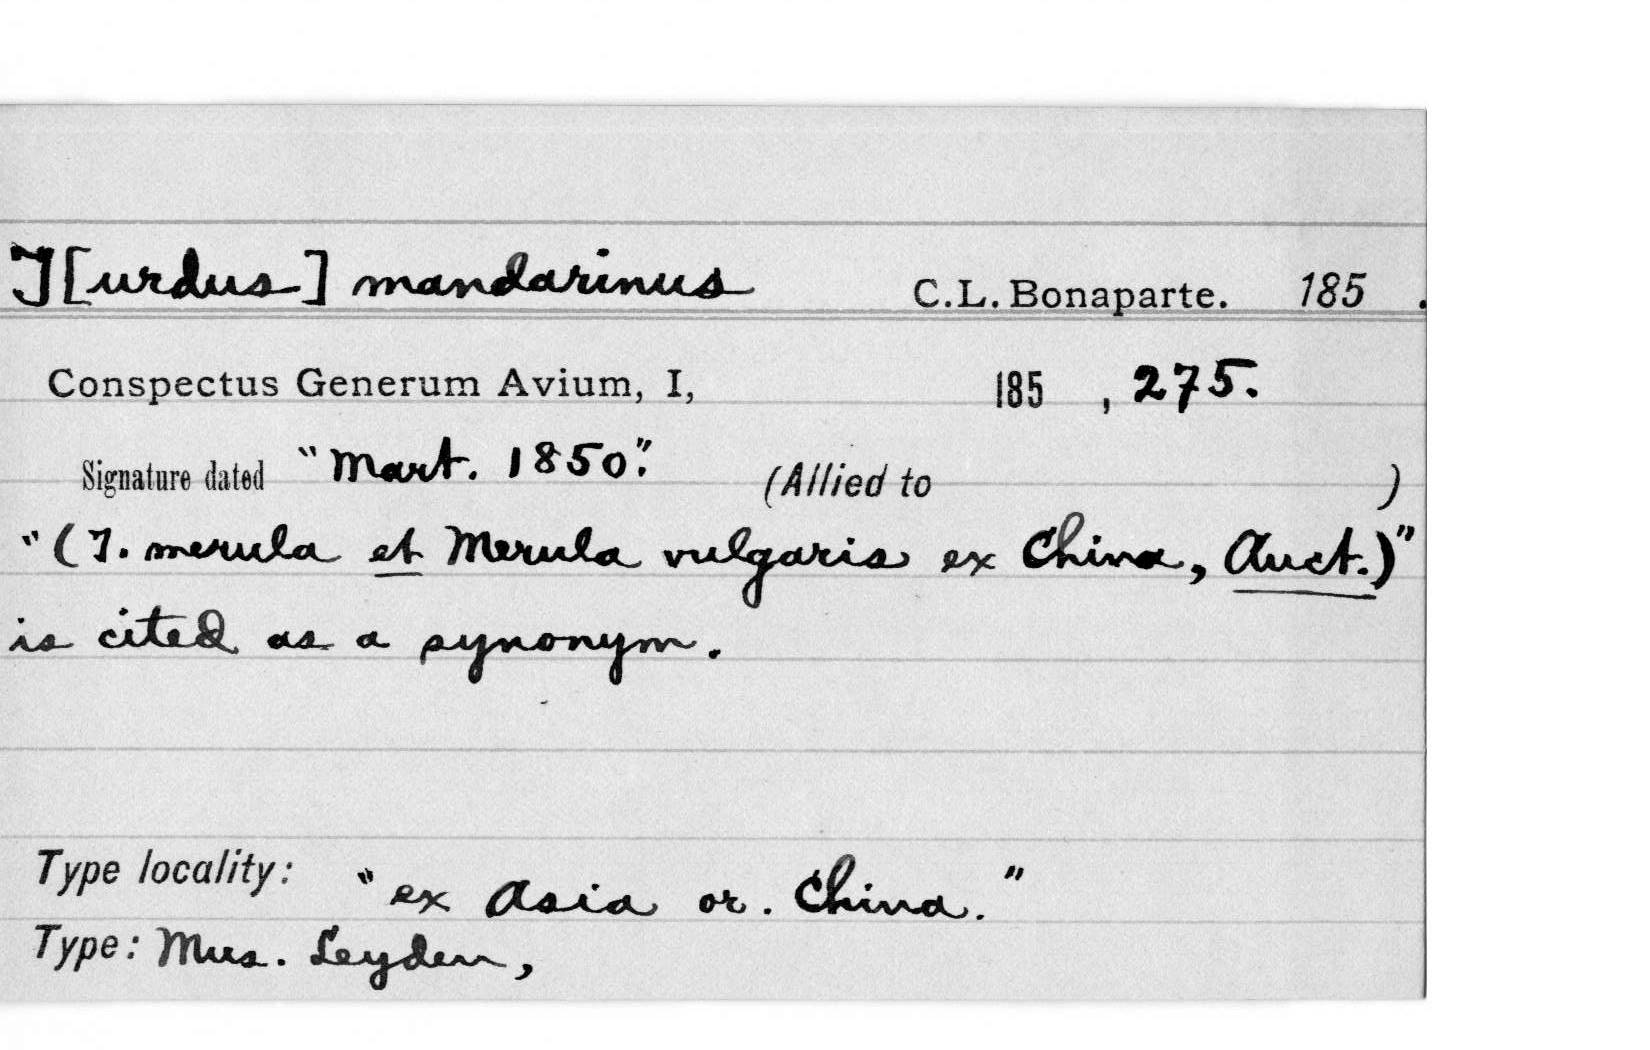 T[urdus] mandarinus C.L. Bonaparte. 185 .
Conspectus Generum Avium, I, 185 , 275.
Signature dated "Mart. 1850". (Allied to )
"(T. merula et Merula vulgaris ex China, Auct.)"
is cited as a synonym.
Type locality: "ex Asia or. China."
Type: Mus. Leyden,